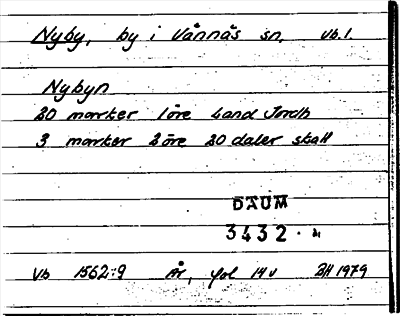 Nyby, by i Vännäs sn. Vb.l.
Nybyn
20 marker 1 öre Land Jordh
3 marker 2 öre 20 daler skatt
DAUM
3432
Vb 1562:9 År, fol 14 v BH 1979